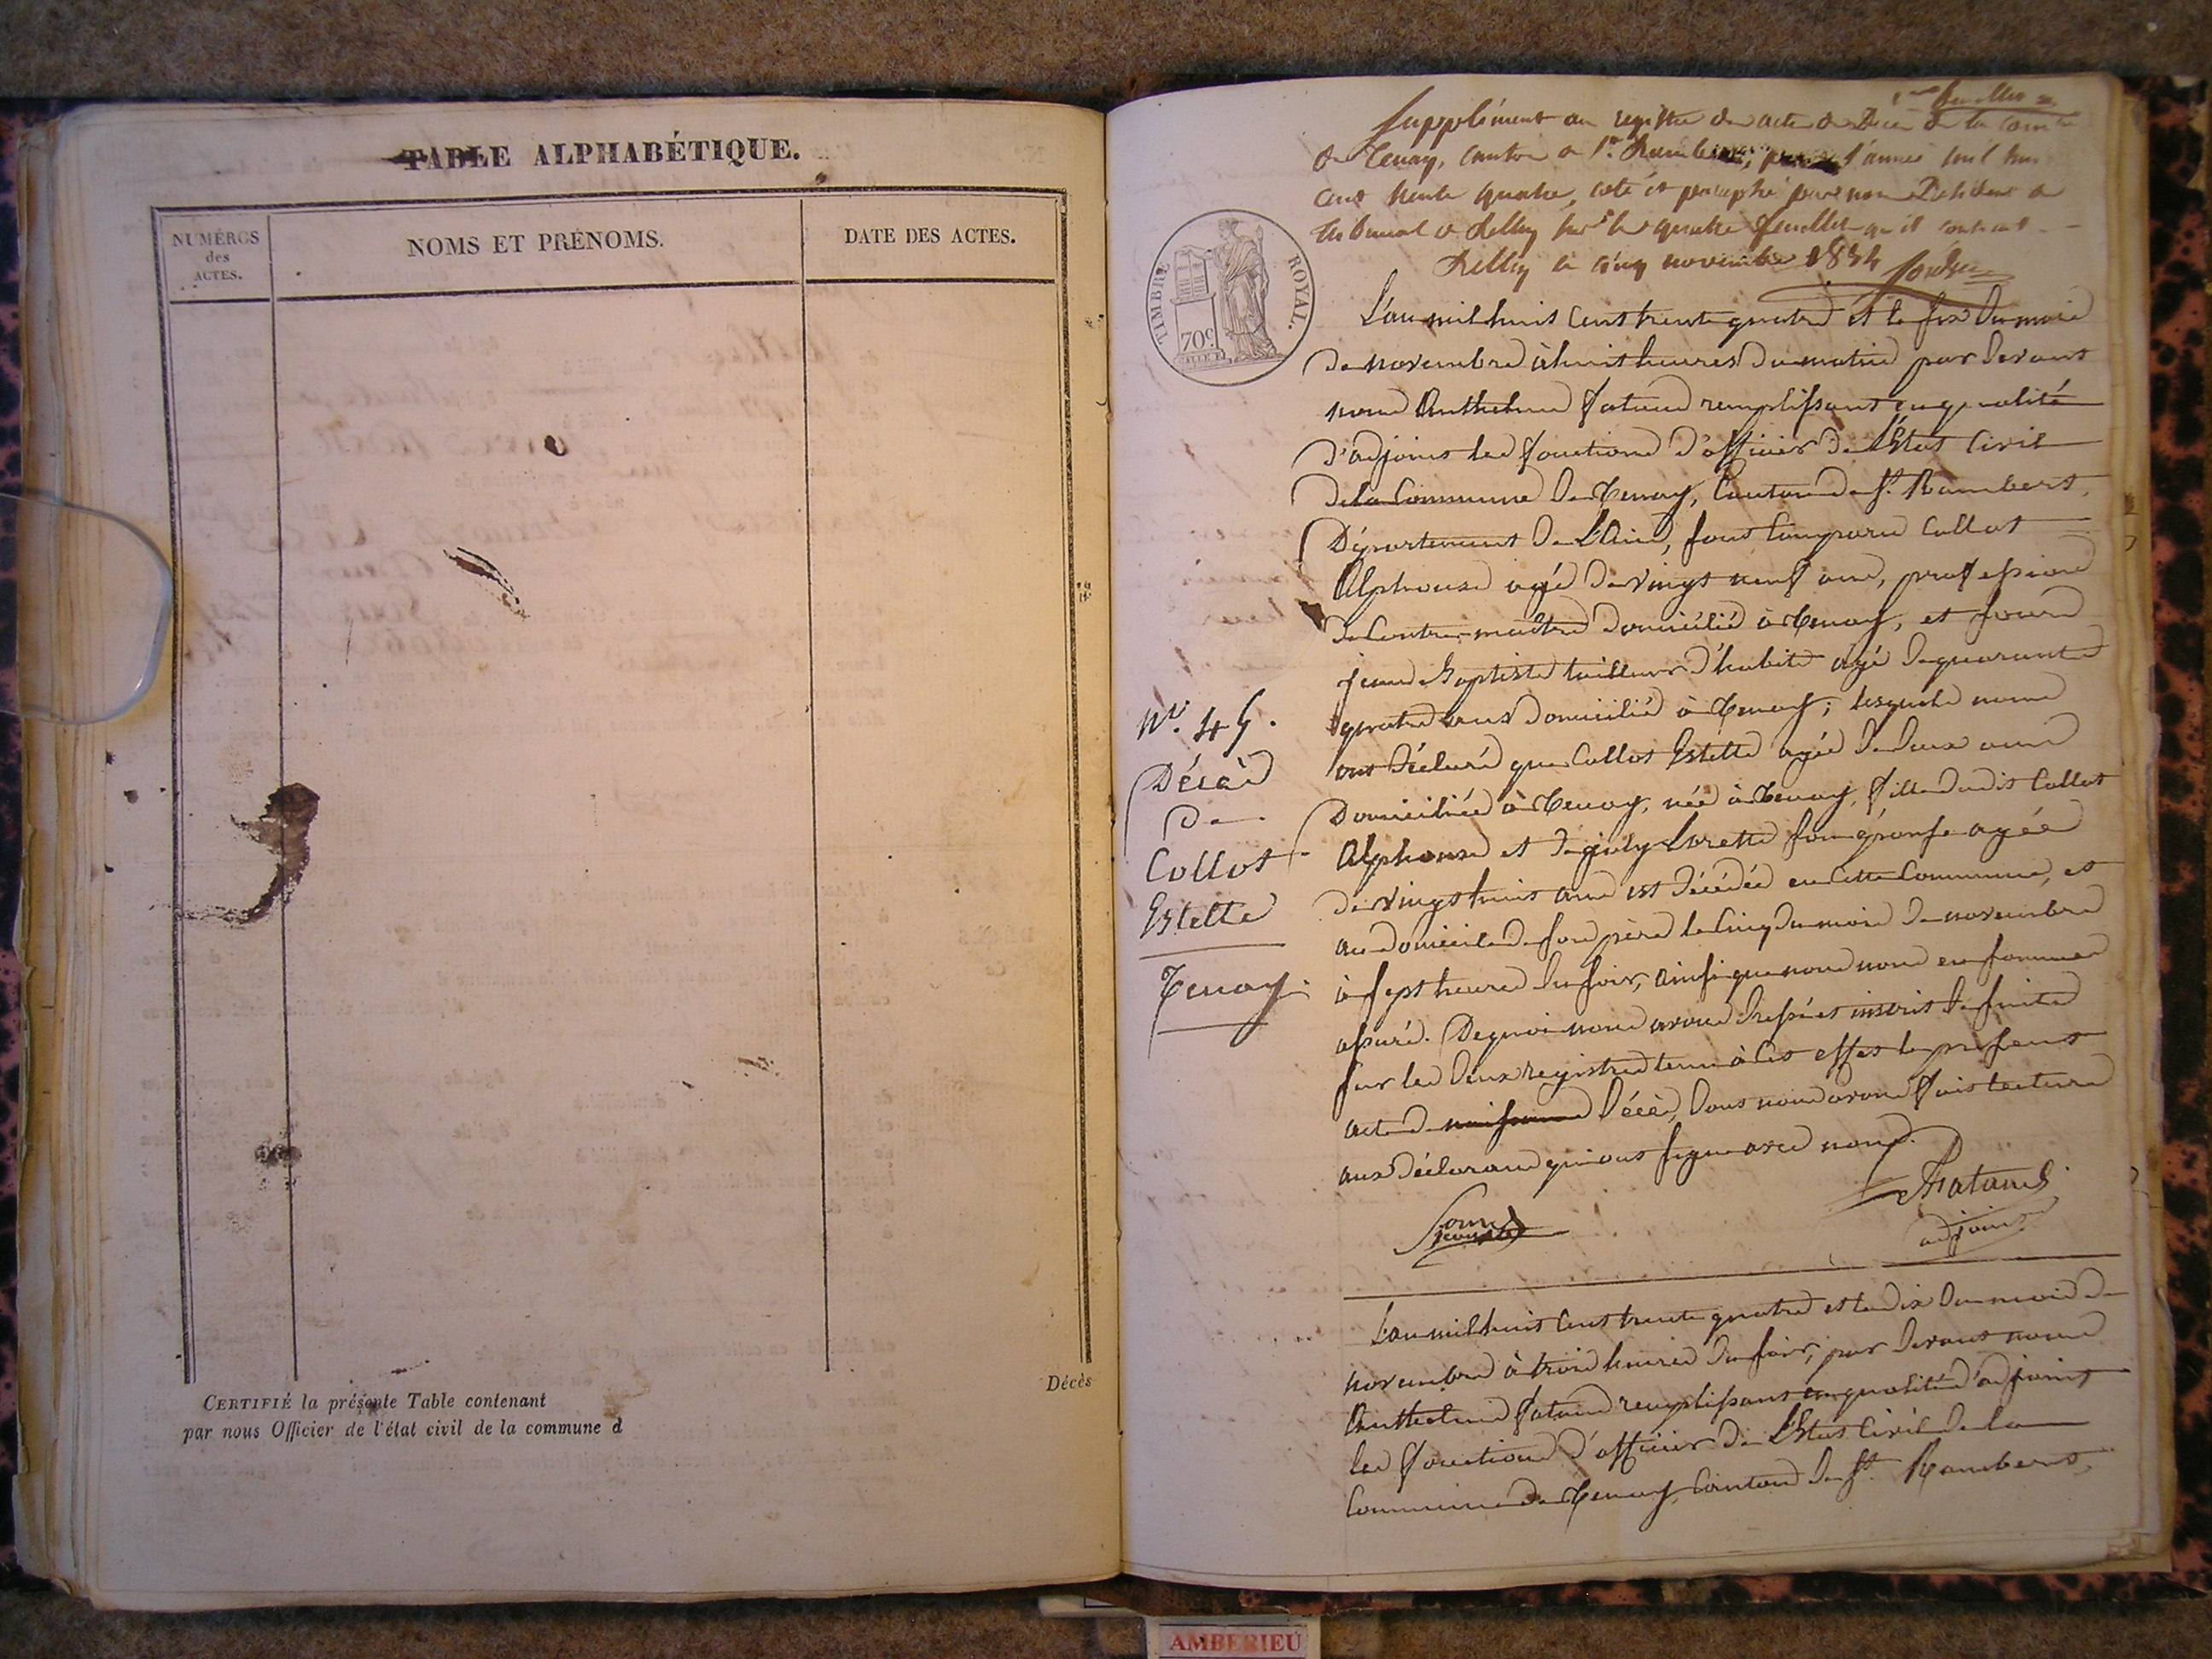 TABLE ALPHABÉTIQUE.
NUMÉROS
des
ACTES.
NOMS ET PRÉNOMS.
DATE DES ACTES.
CERTIFIÉ la présente Table contenant
par nous Officier de l'état civil de la commune d
Décès
feuillet
Supplément au registre des actes de Décès de la
de Tenay, canton de St. Rambert, l'année mil huit
cent trente quatre, coté et paraphé par nous Président du
tribunal de Belley sur les quatre feuillets qu'il contient
Belley le cinq novembre 1834
TIMBRE ROYAL.
70c.
L'an mil huit cent trente quatre et le six du mois
de novembre à huit heures du matin par devant
nous Anthelme Fatand remplissant en qualité
d'adjoint les fonctions d'officier de l'Etat Civil
de la Commune de Tenay, Canton de St. Rambert,
Département de L'Ain, sont Comparu Collot
Alphonse agé de vingt neuf ans, profession
de Contre-maitre domicilié à Tenay, et
jean Baptiste tailleur d'habits agé de quarante
quatre ans domicilié à Tenay; lesquels nous
ont déclaré que Collot Estelle agée de deux ans
Domiciliée à Tenay, née à Tenay, fille dudit Collot
Alphonse et de Lorette son épouse agée
de vingt huit ans est décédée en Cette Commune, et
au domicile de son père le Cinq du mois de novembre
à sept heures du soir, ainsi que nous nous en sommes
assuré. De quoi nous avons dressé et inscrit de suite
sur les deux registres tenu à Cet effet le présent
acte de naissance Décès, dont nous avons fait lecture
aux déclarans qui ont signé avec nous.
No. 45.
Décès
De
Collot
Estelle
Tenay
Fatand
adjoint
L'an mil huit Cent trente quatre et le dix du mois de
novembre à trois heures du soir, par devant nous
Anthelme Fatand remplissant en qualité d'adjoint
les fonctions d'officier de L'Etat Civil de la
Commune de Tenay, Canton de St. Rambert,
AMBERIEU